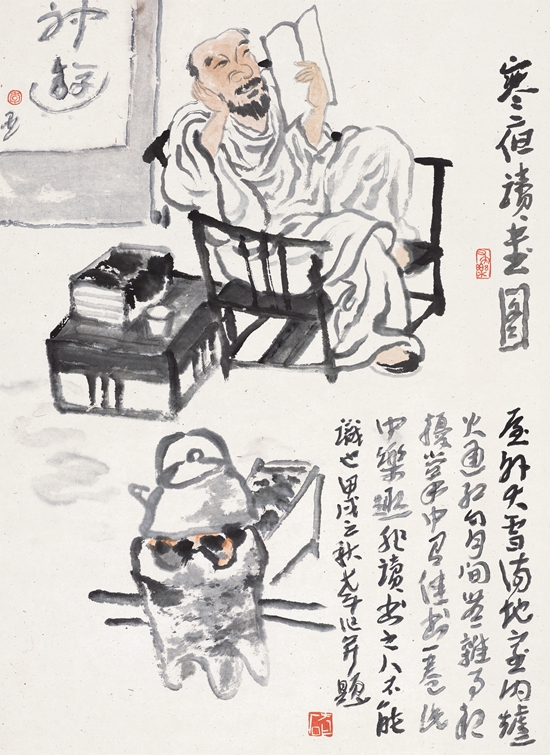 寒夜讀書圖
屋外大雪满地室内爐
火通红間無雜事相
擾掌中有佳書一卷此
中樂趣非讀書之人不能
識也甲戌之秋作并題
神遊